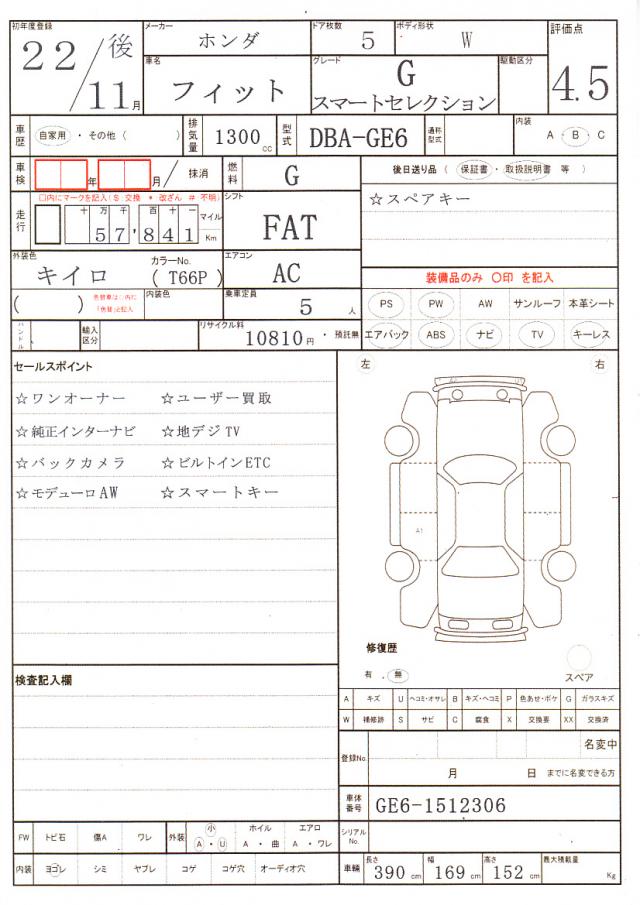 初年度登録 メーカー ホンダ ドア枚数 5 ボディ形状 W 評価点
22 / 後 11 月 車名 フィット グレード G スマートセレクション 駆動区分 4.5
車歴 自家用 ・ その他 ( ) 排気量 1300 cc 型式 DBA-GE6 通称型式 内装 A ・ B ・ C
車検 年 月 / 抹消 燃料 G 後日送り品 ( 保証書 ・ 取扱説明書 等 )
□内にマークを記入(S:交換 * 改ざん # 不明) シフト ☆スペアキー
走行 十 万 千 百 十 一 57,841 マイル Km FAT
外装色 キイロ カラーNo. ( T66P ) エアコン AC 装備品のみ 〇印 を記入
( ) 色替車は○内に「色替」と記入 内装色 乗車定員 5 人 PS PW AW サンルーフ 本革シート
ハンドル 輸入区分 リサイクル料 10810 円 ・ 預託無 エアバック ABS ナビ TV キーレス
セールスポイント 左 右
☆ワンオーナー ☆ユーザー買取
☆純正インターナビ ☆地デジTV
☆バックカメラ ☆ビルトインETC
☆モデューロAW ☆スマートキー
A1
修復歴
有 . 無 スペア
検査記入欄
A キズ U ヘコミ・オサレ B キズ・ヘコミ P 色あせ・ボケ G ガラスキズ
W 補修跡 S サビ C 腐食 X 交換要 XX 交換済
登録No. 名変中
月 日 までに名変できる方
車体番号 GE6-1512306
FW トビ石 傷A ワレ 外装 小 A ・ U ホイル A ・ 曲 エアロ A ・ ワレ シリアルNo.
内装 ヨゴレ シミ ヤブレ コゲ コゲ穴 オーディオ穴 車輛 長さ 390 cm 幅 169 cm 高さ 152 cm 最大積載量 Kg